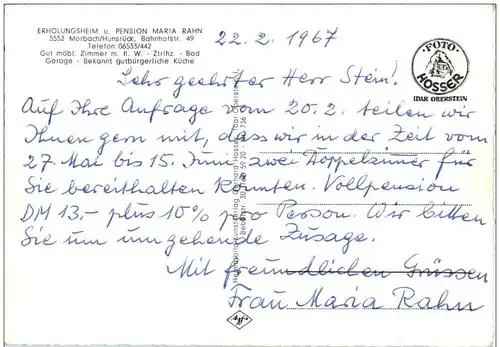 ERHOLUNGSHEIM u. PENSION MARIA RAHN
5552 Morbach/Hunsrück, Bahnhofstr. 49
Telefon 06533/442
Gut möbl. Zimmer m. fl. W. - Ztrlhz. - Bad
Garage - Bekannt gutbürgerliche Küche
22.2.1967
FOTO
HOSSER
IDAR OBERSTEIN
Sehr geehrter Herr Stein!
Auf Ihre Anfrage vom 20.2. teilen wir
Ihnen gern mit, dass wir in der Zeit vom
27. Mai bis 15. Juni zwei Doppelzimmer für
Sie bereithalten könnten. Vollpension
DM 13.- plus 10% pro Person. Wir bitten
Sie um umgehende Zusage.
Mit freundlichen Grüssen
Frau Maria Rahn